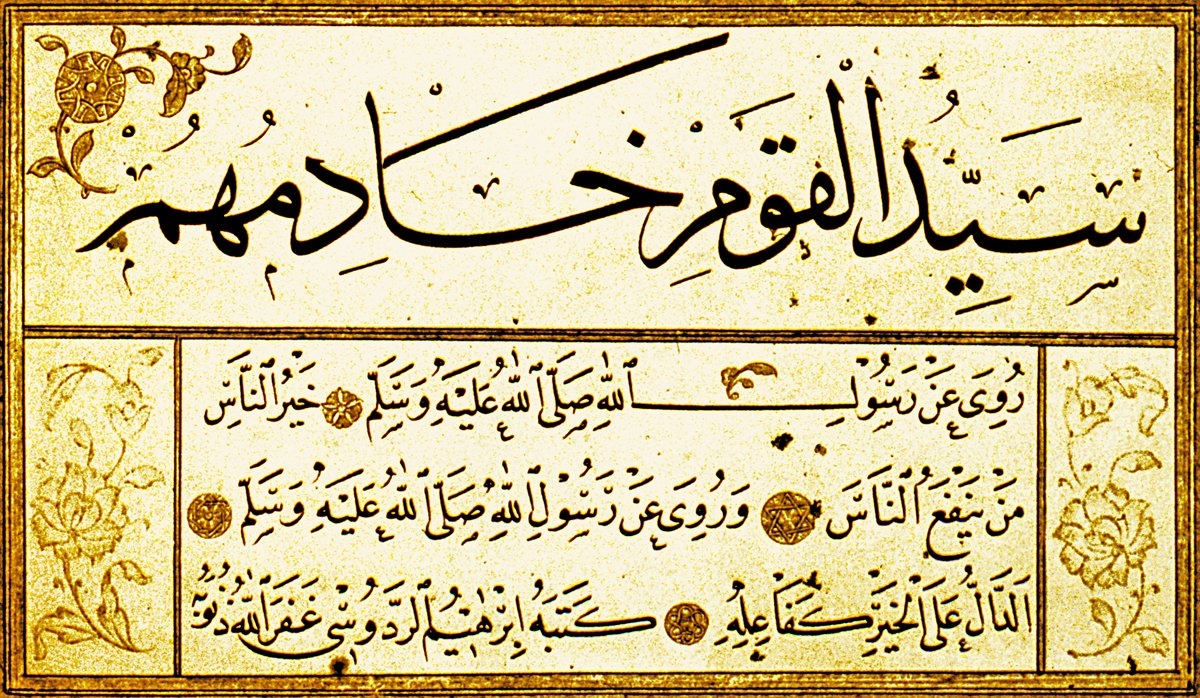 سَيِّدُ الْقَوْمِ خَادِمُهُمْ
رُوِيَ عَنْ رَسُولِ اللهِ صَلَّى اللهُ عَلَيْهِ وَسَلَّمَ خَيْرُ النَّاسِ
مَنْ يَنْفَعُ النَّاسَ وَرُوِيَ عَنْ رَسُولِ اللهِ صَلَّى اللهُ عَلَيْهِ وَسَلَّمَ
الدَّالُّ عَلَى الْخَيْرِ كَفَاعِلِهِ كَتَبَهُ إِبْرٰهِيمُ الرُّدُوسِي غَفَرَ اللهُ ذُنُوبَهُ